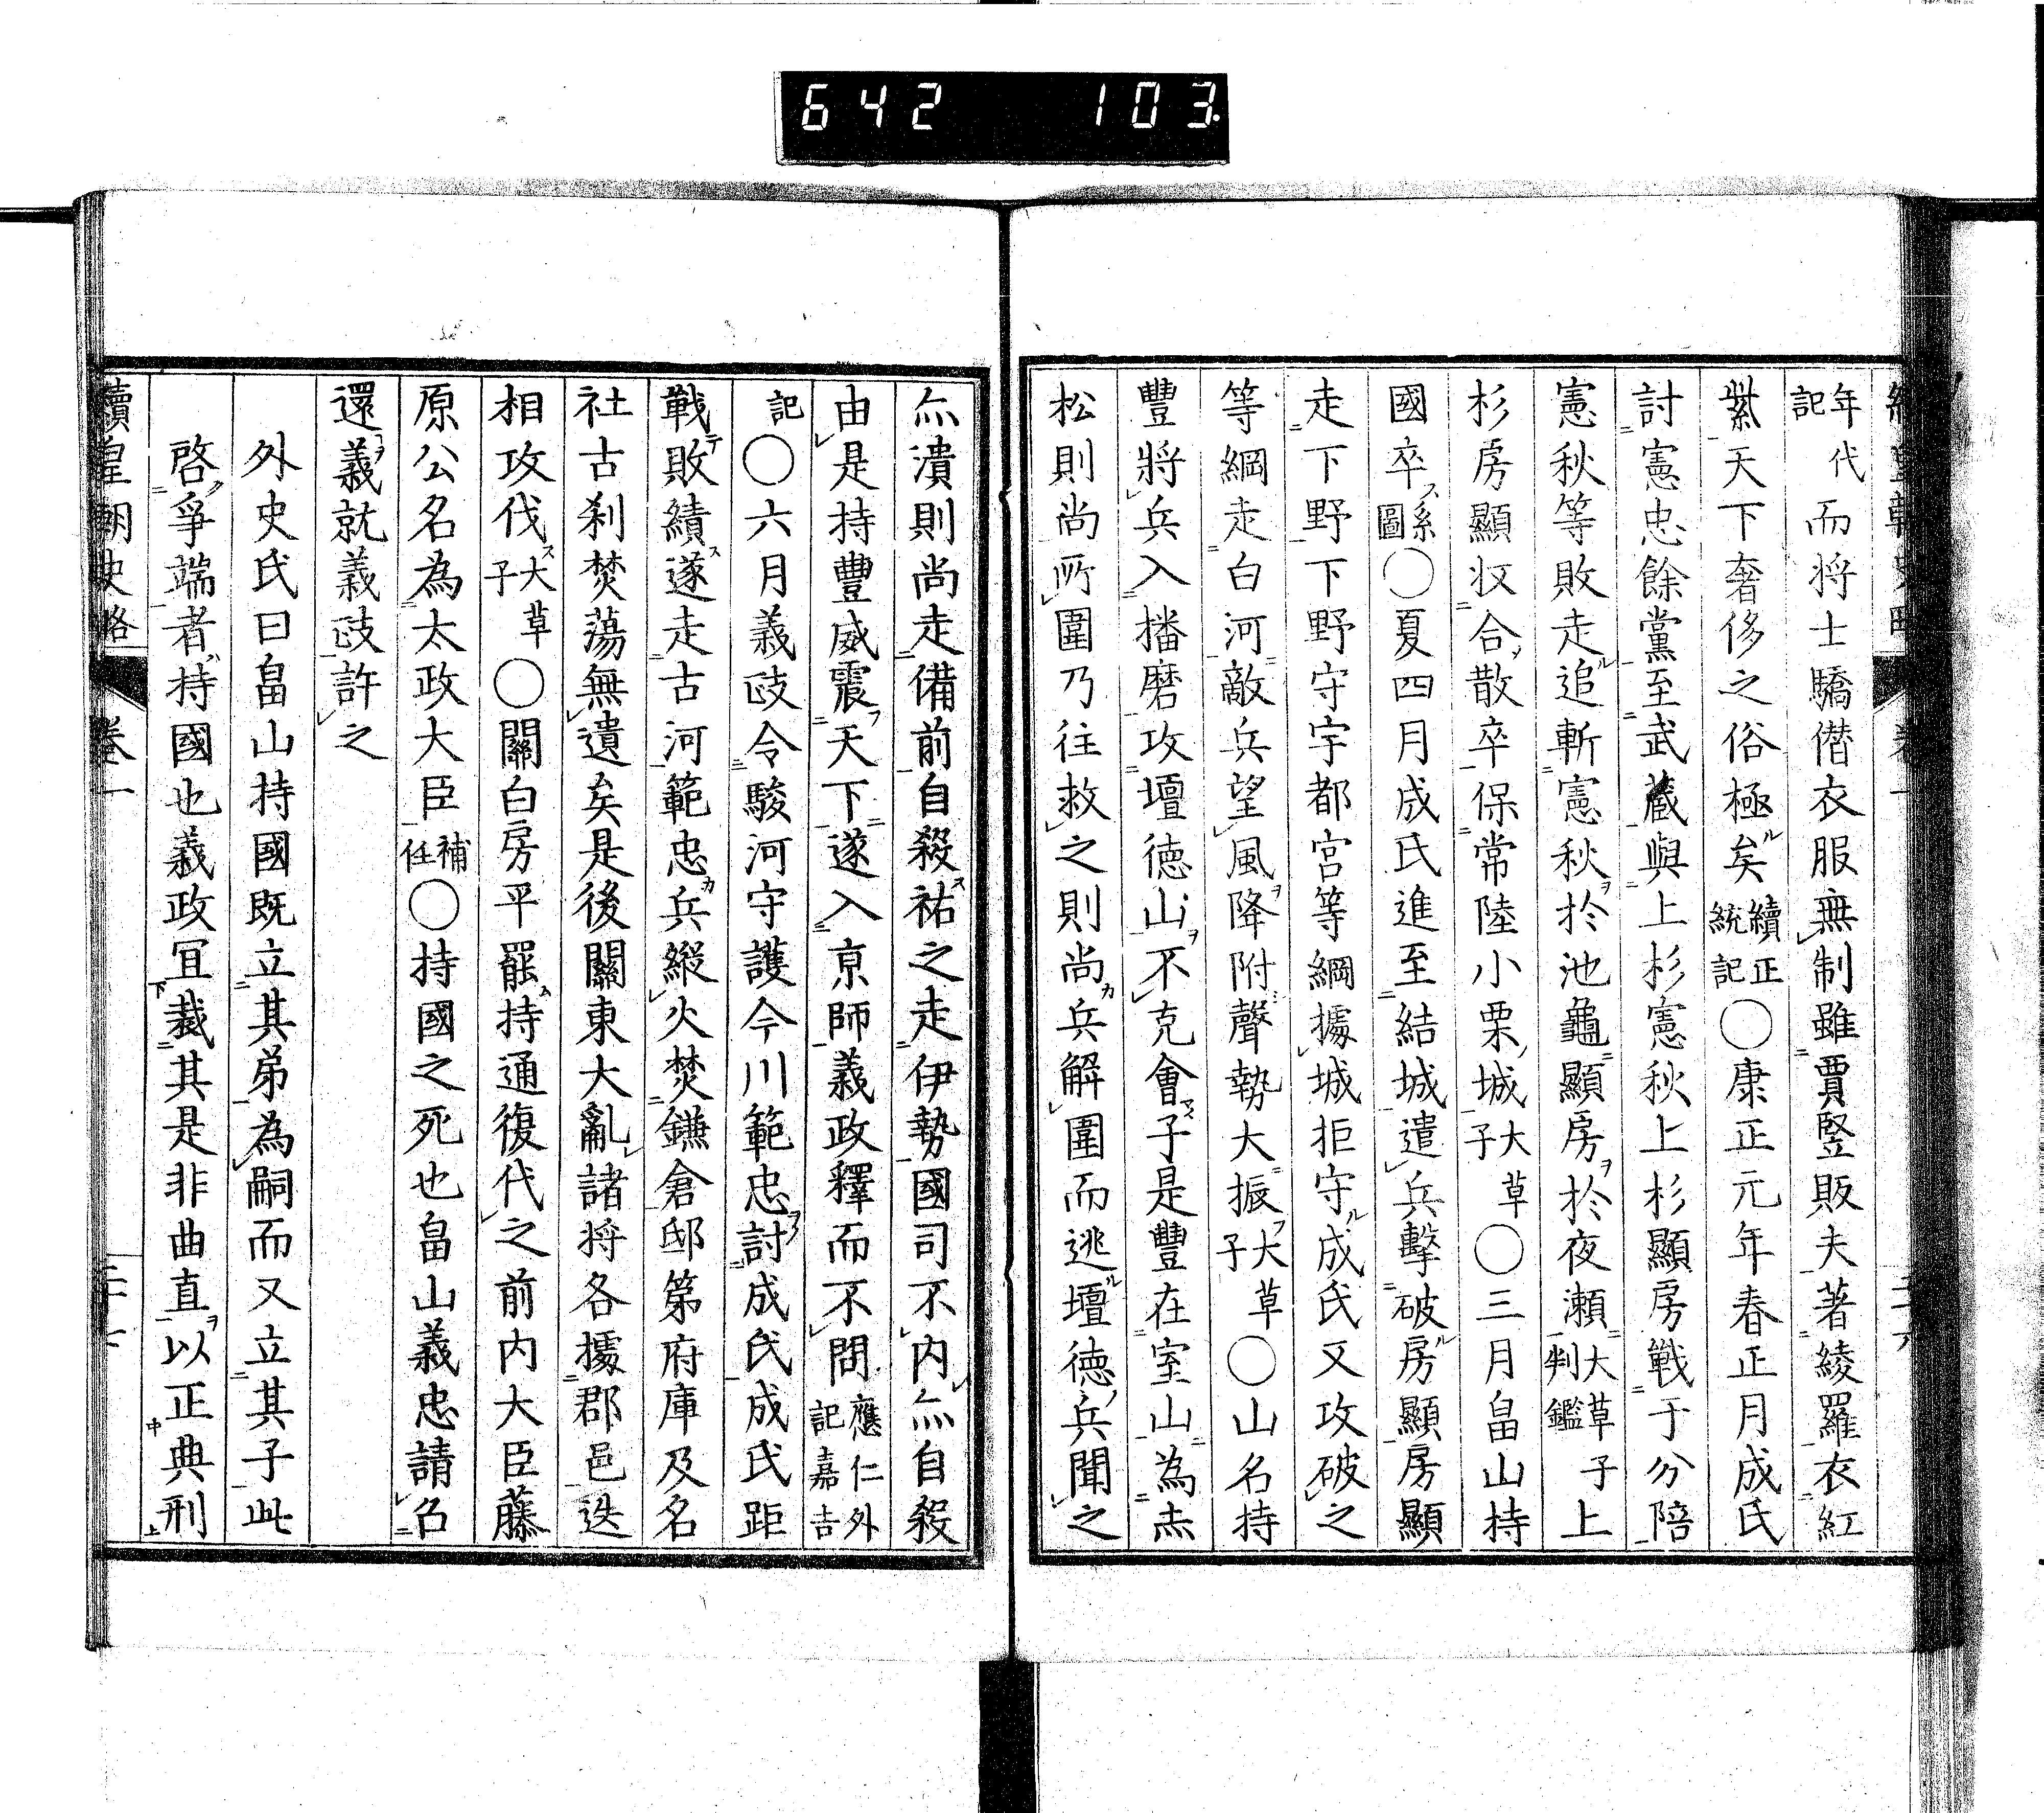 642 103
年代記而将士驕僣衣服無制雖賈竪販夫著綾羅衣紅
紫天下奢侈之俗極矣續正統記〇康正元年春正月成氏
討憲忠餘黨至武蔵與上杉憲秋上杉顯房戦于分陪
憲秋等敗走追斬憲秋於池龜顯房於夜瀬大草子判鑑上
杉房顯收合散卒保常陸小栗城大草子〇三月畠山持
國卒系圖〇夏四月成氏進至結城遣兵擊破房顯房顯
走下野下野守宇都宮等綱據城拒守成氏又攻破之
等綱走白河敵兵望風降附聲勢大振大草子〇山名持
豐將兵入播磨攻壇德山不克會子是豐在室山為赤
松則尚所圍乃往救之則尚兵解圍而逃壇德兵聞之
亦潰則尚走備前自殺祐之走伊勢國司不内亦自殺
由是持豐威震天下遂入京師義政釋而不問應仁外記嘉吉
記〇六月義政令駿河守護今川範忠討成氏成氏距
戰敗績遂走古河範忠兵縱火焚鎌倉邸第府庫及名
社古刹焚蕩無遺矣是後關東大亂諸将各據郡邑迭
相攻伐大草子〇關白房平罷持通復代之前内大臣藤
原公名為太政大臣補任〇持國之死也畠山義忠請召
還義就義政許之
外史氏曰畠山持國既立其弟為嗣而又立其子此
啓爭端者持國也義政宜裁其是非曲直以正典刑
續皇朝史略 卷一 二十七